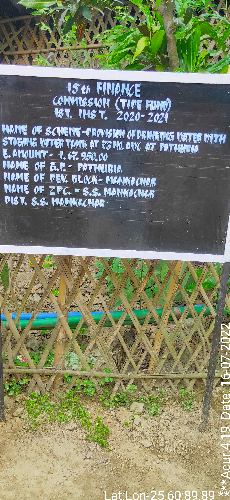 15th FINANCE
COMMISSION (TIED FUND)
1ST. INST. 2020-2021
NAME OF SCHEME-PROVISION OF DRINKING WATER WITH
STORING WATER TANK AT AT PATHURIA
E. AMOUNT- 1,67,950.00
NAME OF G.P.- PATHURIA
NAME OF DEV. BLOCK- MANKACHAR
NAME OF Z.P.C. - S.S. MANKACHAR
DIST. S.S. MANKACHAR
Lat Lon-25.60 89.89
Date: 16-07-2022